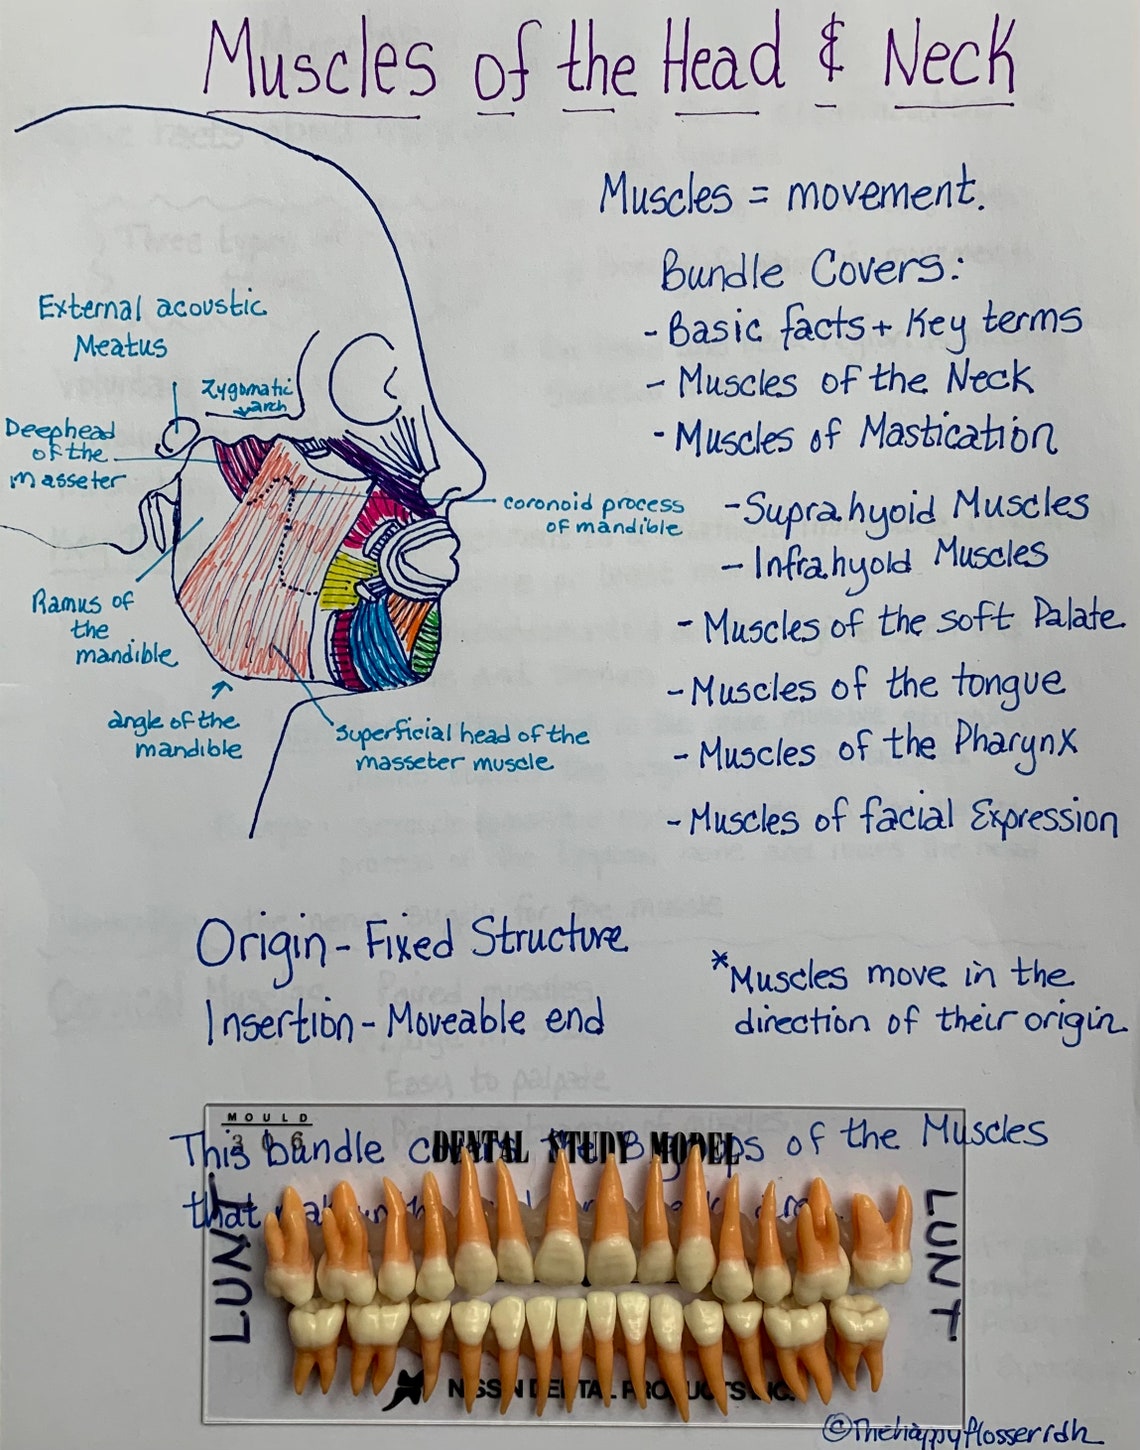 Muscles of the Head & Neck
Muscles = movement.
Bundle Covers:
- Basic facts + Key terms
- Muscles of the Neck
- Muscles of Mastication
- Suprahyoid Muscles
- Infrahyoid Muscles
- Muscles of the soft Palate
- Muscles of the tongue
- Muscles of the Pharynx
- Muscles of facial Expression
External acoustic
Meatus
Zygomatic
arch
Deep head
of the
masseter
coronoid process
of mandible
Ramus of
the
mandible
angle of the
mandible
Superficial head of the
masseter muscle
Origin - Fixed Structure
Insertion - Moveable end
*Muscles move in the
direction of their origin
MOULD
306
DENTAL STUDY MODEL
This bundle the 8 of the Muscles
that
LUNT
LUNT
NISSIN DENTAL PRODUCTS INC.
©Thehappyflosserrdh